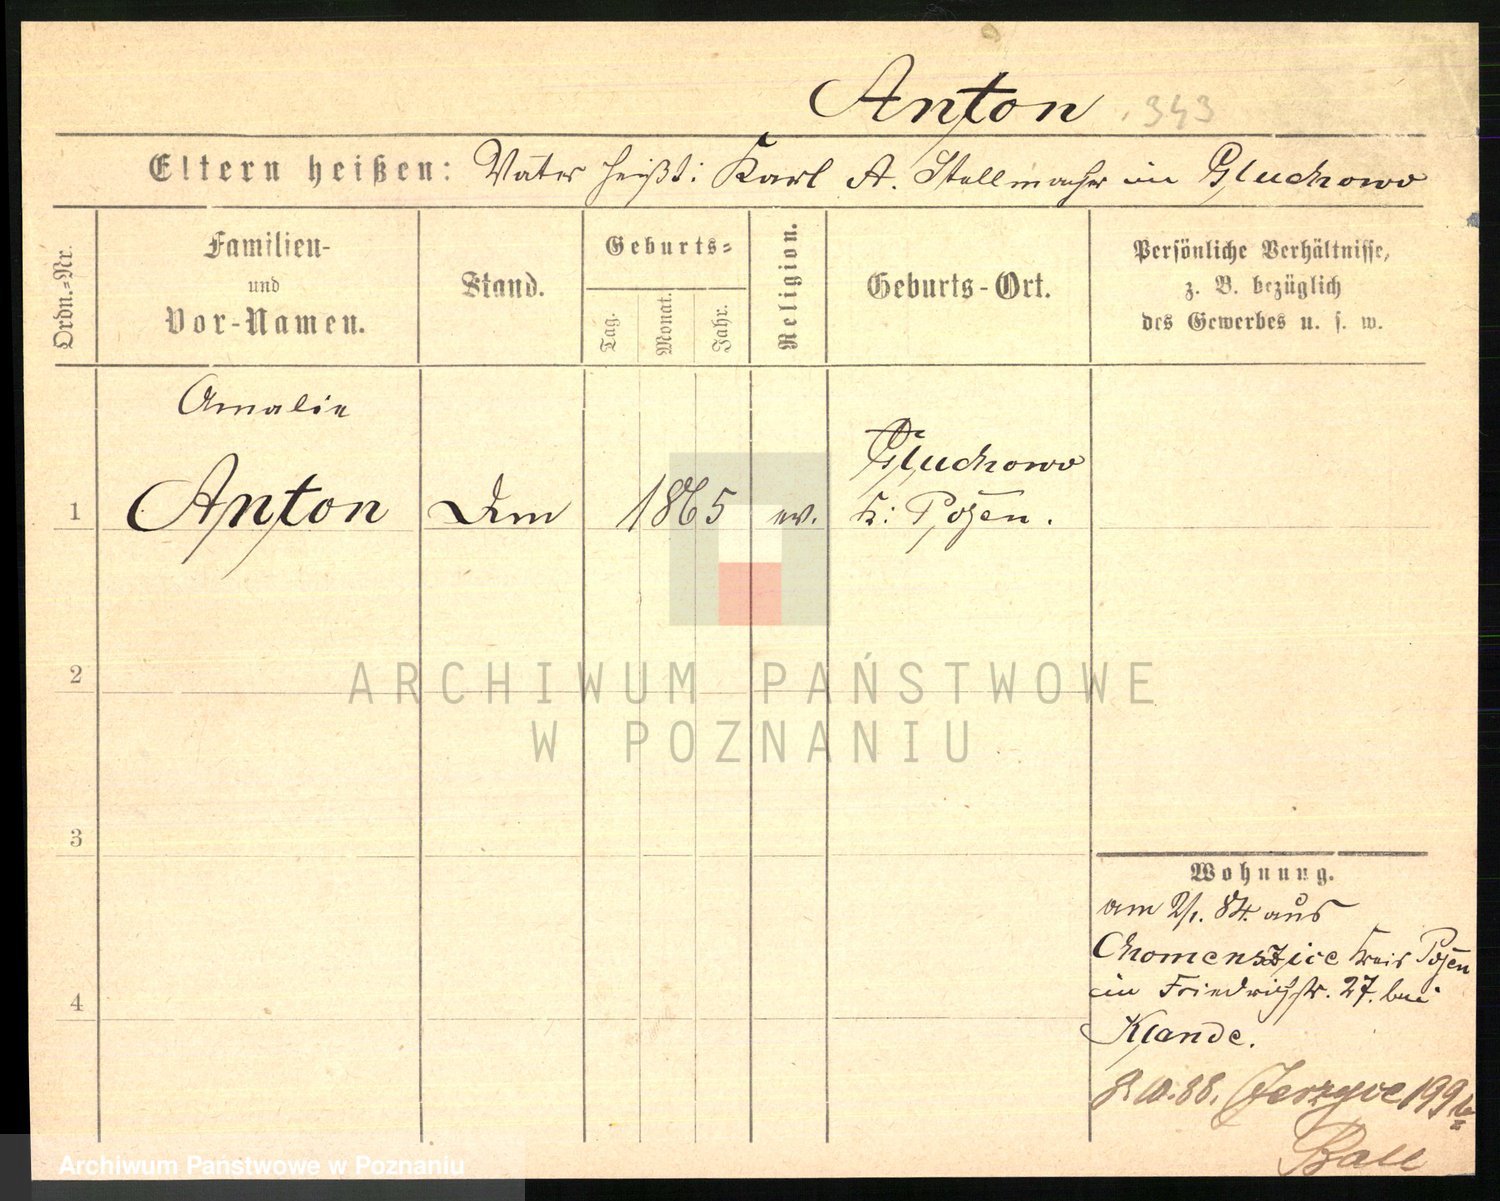 Anton 343
Eltern heißen: Vater heißt: Karl A. Stellmacher in Gluchowo
Ordn.-Nr.
Familien-
und
Vor-Namen.
Stand.
Geburts-
Tag.
Monat.
Jahr.
Religion.
Geburts-Ort.
Persönliche Verhältnisse,
z. B. bezüglich
des Gewerbes u. s. w.
Amalie
1 Anton Dm 1865 ev. Gluchowo
K: Posen.
2
ARCHIWUM PAŃSTWOWE
W POZNANIU
3
Wohnung.
am 2/1. 84. aus
Chomenszice Kreis Posen
in Friedrichstr. 27. bei
4
Klande.
Jerzyce 199
Archiwum Państwowe w Poznaniu